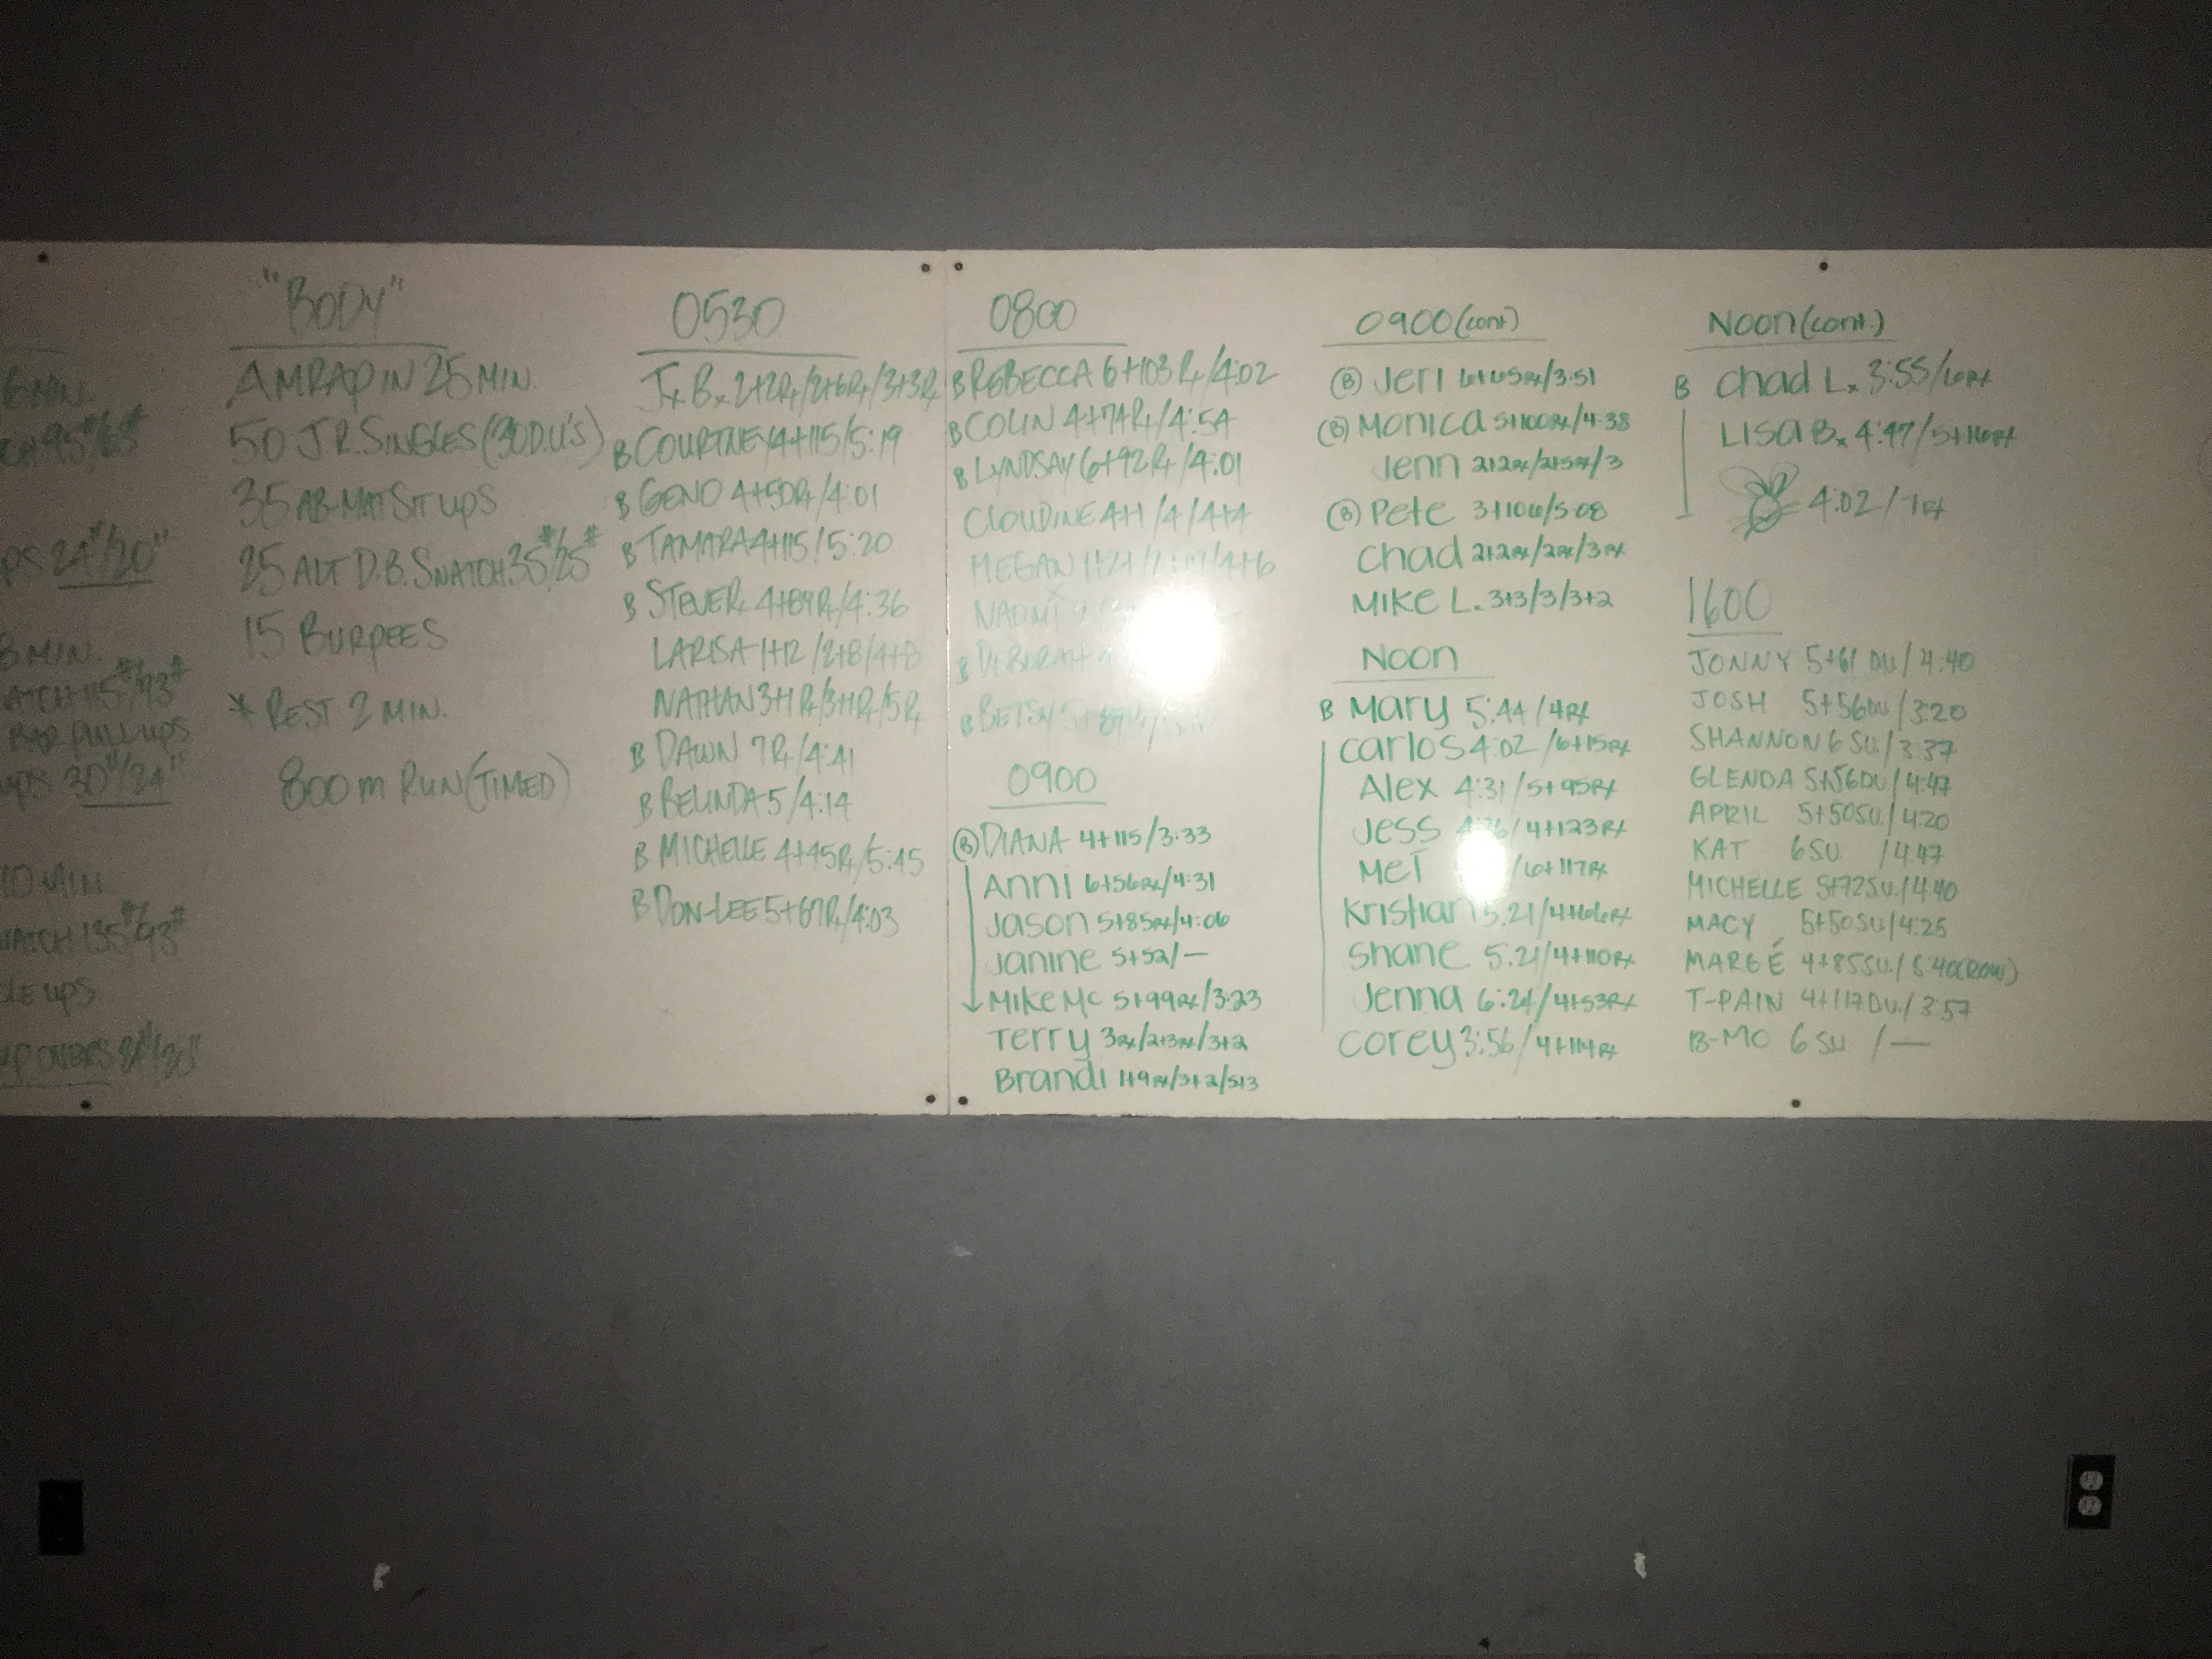 6 MIN.
95#/65#
24"/20"
8 MIN.
115#/73#
BAR PULL UPS
30"/24"
10 MIN
135#/93#
UPS
"BODY"
AMRAP IN 25 MIN.
50 J.R. SINGLES (30 D.U'S)
35 AB-MAT SIT UPS
25 ALT D.B. SNATCH 35#/25#
15 BURPEES
* REST 2 MIN.
800 m RUN (TIMED)
0530
B COURTNEY 4+115/5:19
B GENO 4+50Rx/4:01
B TAMARA 4+115/5:20
B STEVER 4+89Rx/4:36
LARISA 1+12/2+8/4+8
NATHAN 3+1Rx/3+1Rx/5Rx
B DAWN 7Rx/4:41
B BELINDA 5/4:14
B MICHELLE 4+45Rx/5:45
B DON-LEE 5+67Rx/4:03
0800
B REBECCA 6+103Rx/4:02
B COLIN 4+74Rx/4:54
B LYNDSAY 6+92Rx/4:01
CLOUDINE 4+1/4/4+4
MEGAN 1+21/ /4+6
NAOMI
B DEBORAH
B BETSY
0900
(B) DIANA 4+115/3:33
Anni 6+56Rx/4:31
Jason 5+85Rx/4:06
Janine 5+52/—
Mike Mc 5+99Rx/3:23
Terry 3Rx/2+3Rx/3+2
Brandi 1+9Rx/3+2/5+3
0900 (cont)
(B) Jeri 6+65Rx/3:51
(B) Monica 5+100Rx/4:38
Jenn 2+2Rx/2+5Rx/3
(B) Pete 3+106/5:08
Chad 2+2Rx/2Rx/3Rx
MIKE L. 3+3/3/3+2
NOON
B Mary 5:44/4Rx
Carlos 4:02/6+15Rx
Alex 4:31/5+95Rx
Jess /4+123Rx
MeT /6+117Rx
Kristian 5:21/4+66Rx
Shane 5:21/4+110Rx
Jenna 6:24/4+53Rx
Corey 3:56/4+114Rx
NOON (cont.)
B Chad L. 3:55/6Rx
LISA B. 4:47/5+116Rx
4:02/7Rx
1600
JONNY 5+61 DU/4:40
JOSH 5+56DU/3:20
SHANNON 6 SU/3:37
GLENDA 5+56DU/4:47
APRIL 5+50SU/4:20
KAT 6SU. /4:47
MICHELLE 5+72SU./4:40
MACY 5+50SU/4:25
MARGÉ 4+85SU./5:40(ROW)
T-PAIN 4+117DU./3:57
B-MO 6 SU /—